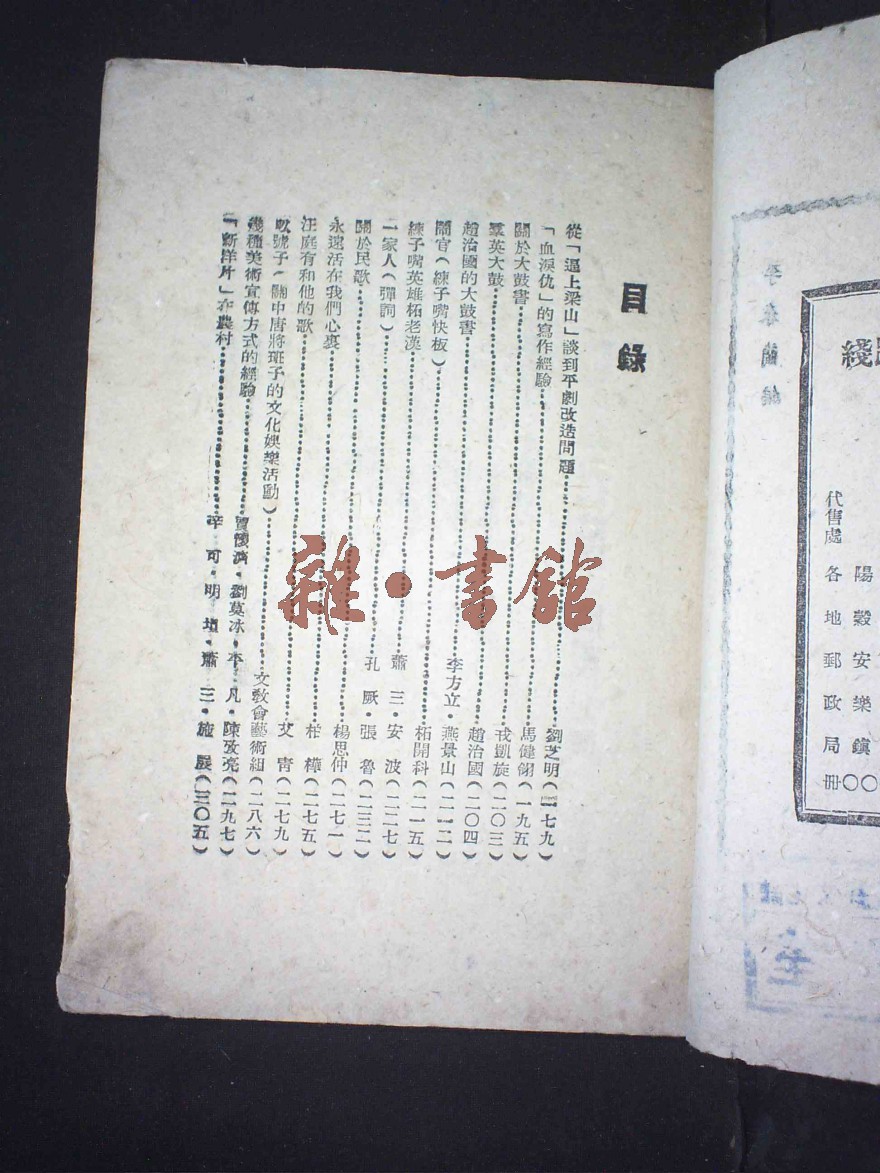 目錄
從「逼上梁山」談到平劇改造問題……劉芝明(一七九)
「血淚仇」的寫作經驗……馬健翎(一九五)
關於大鼓書……戎凱旋(二〇三)
羣英大鼓……趙治國(二〇四)
趙治國的大鼓書……李方立·燕景山(二一二)
鬧官(練子嘴快板)……柘開科(二一五)
練子嘴英雄柘老漢……蕭三·安波(二二七)
一家人(彈詞)……孔厥·張魯(二三二)
關於民歌
永遠活在我們心裏……楊思仲(二七一)
汪庭有和他的歌……柱樺(二七五)
艾青(二七九)
號子(關中唐將班子的文化娛樂活動)……文教會藝術組(二八六)
幾種美術宣傳方式的經驗……賈懷濟·劉莫冰·李凡·陳孜亮(二九七)
「新洋片」在農村……辛可·明壇·蕭三·施展(三〇五)
雜·書館
綫
陽穀安樂鎮
代售處各地郵政局
冊